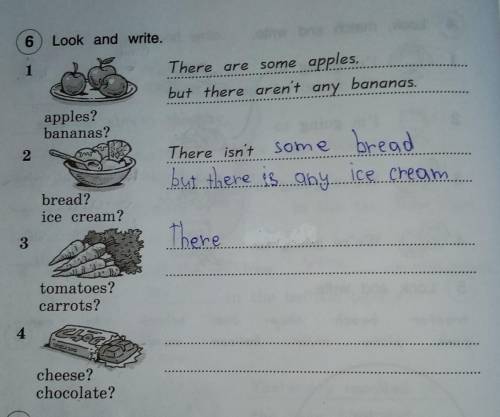 6 Look and write.
1
There are some apples,
but there aren't any bananas.
apples?
bananas?
2
There isn't some bread
but there is any ice cream
bread?
ice cream?
3
There
tomatoes?
carrots?
4
cheese?
chocolate?